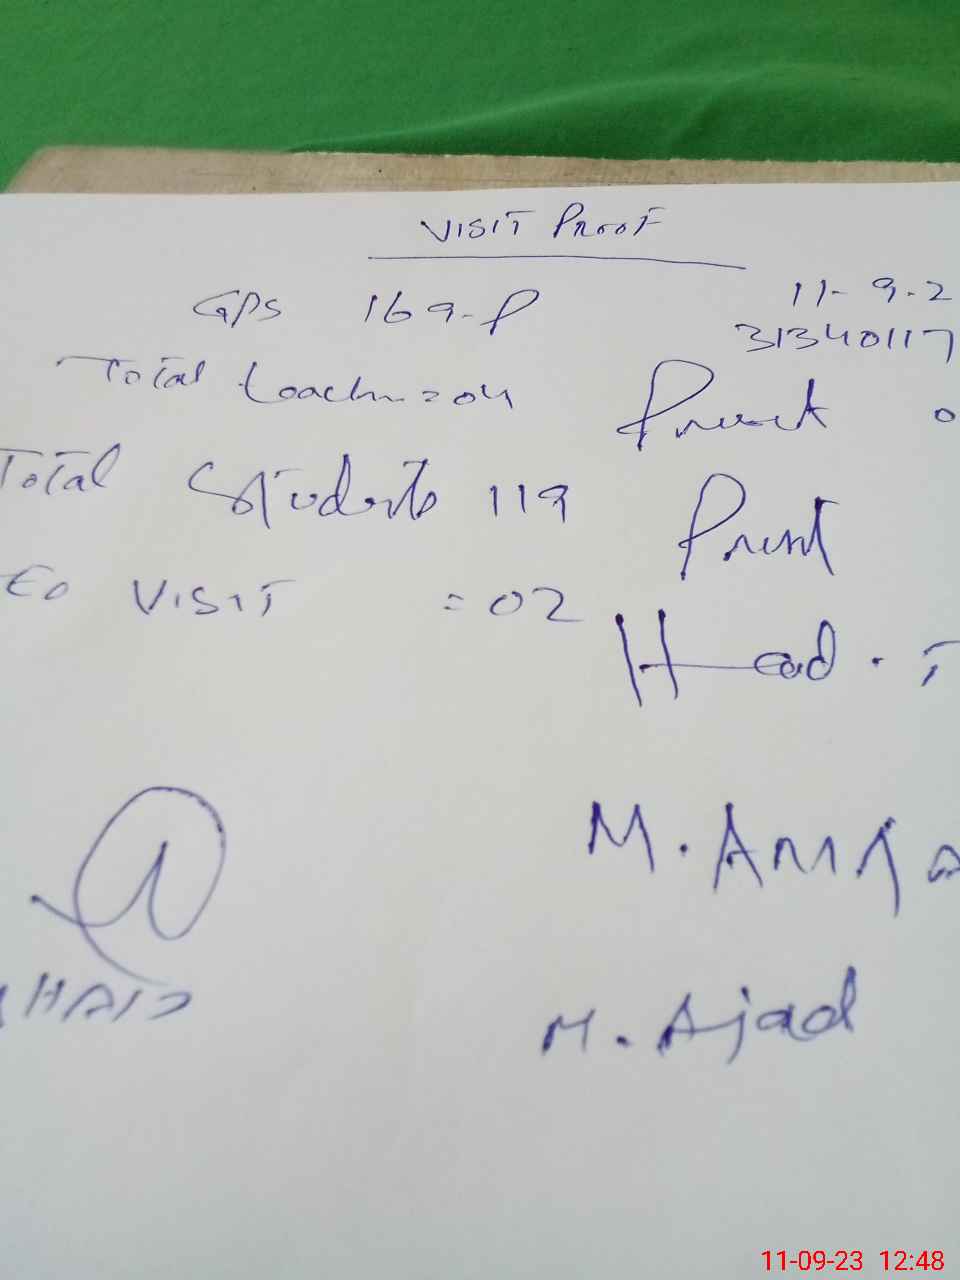 VISIT PROOF
GPS 169-P 11-9-2
31340117
Total teachers = 04 Present 0
Total Students 119 Present
EO VISIT = 02
Head. T
M. 
M. Ajad
11-09-23 12:48